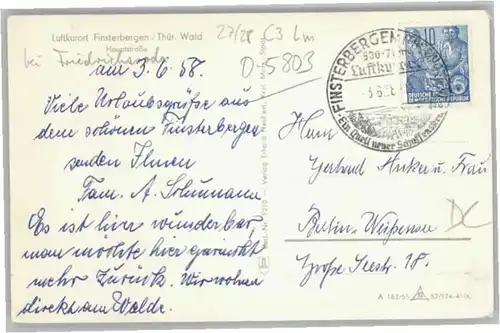 Luftkurort Finsterbergen / Thür. Wald
Hauptstraße
bei Friedrichroda
27/28 C3 Lm
D-5803
am 3.6.58.
Viele Urlaubsgrüße aus
dem schönen Finsterbergen
senden Ihnen
Fam. A. Schumann
Es ist hier wunderbar,
man möchte hier garnicht
mehr zurück. Wir wohnen
direkt am Walde.
FINSTERBERGEN
Luftkurort
Ein Quell neuer Schaffenskraft
10
DEUTSCHE
DEMOKRATISCHE REPUBLIK
Herrn
Gerhard Anker u. Frau
Berlin-Weißensee
Große Seestr. 18.
DC
A 182/55